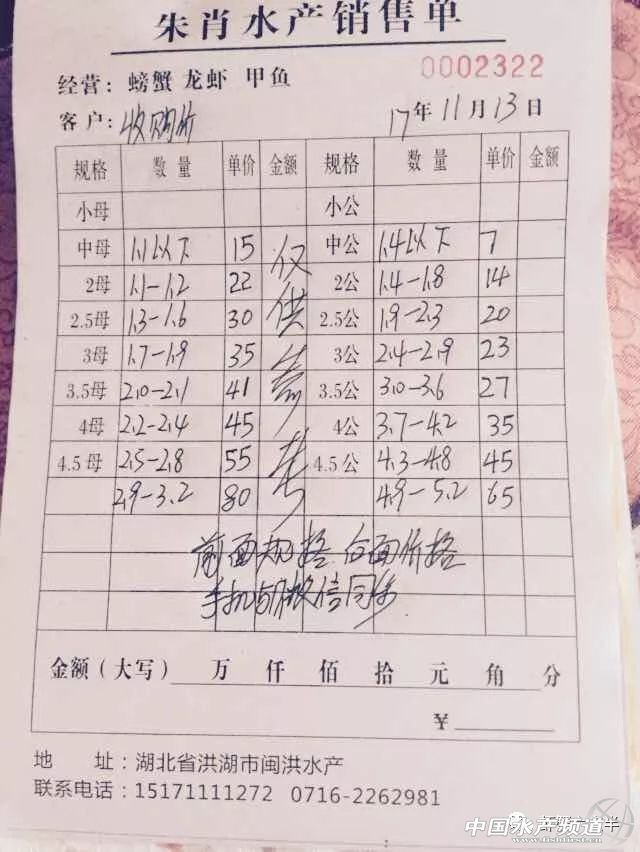 朱肖水产销售单
经营：螃蟹 龙虾 甲鱼 0002322
客户：收购价 17年11月13日
规格 数量 单价 金额 规格 数量 单价 金额
小母 小公
中母 1.1以下 15 中公 1.4以下 7
2母 1.1-1.2 22 2公 1.4-1.8 14
2.5母 1.3-1.6 30 2.5公 1.9-2.3 20
3母 1.7-1.9 35 3公 2.4-2.9 23
3.5母 2.0-2.1 41 3.5公 3.0-3.6 27
4母 2.2-2.4 45 4公 3.7-4.2 35
4.5母 2.5-2.8 55 4.5公 4.3-4.8 45
2.9-3.2 80 4.9-5.2 65
仅供参考
前面规格 后面价格
手机与微信同步
金额（大写） 万 仟 佰 拾 元 角 分
¥
地 址：湖北省洪湖市闽洪水产
联系电话：15171111272 0716-2262981
中国水产频道
www.fishfirst.cn